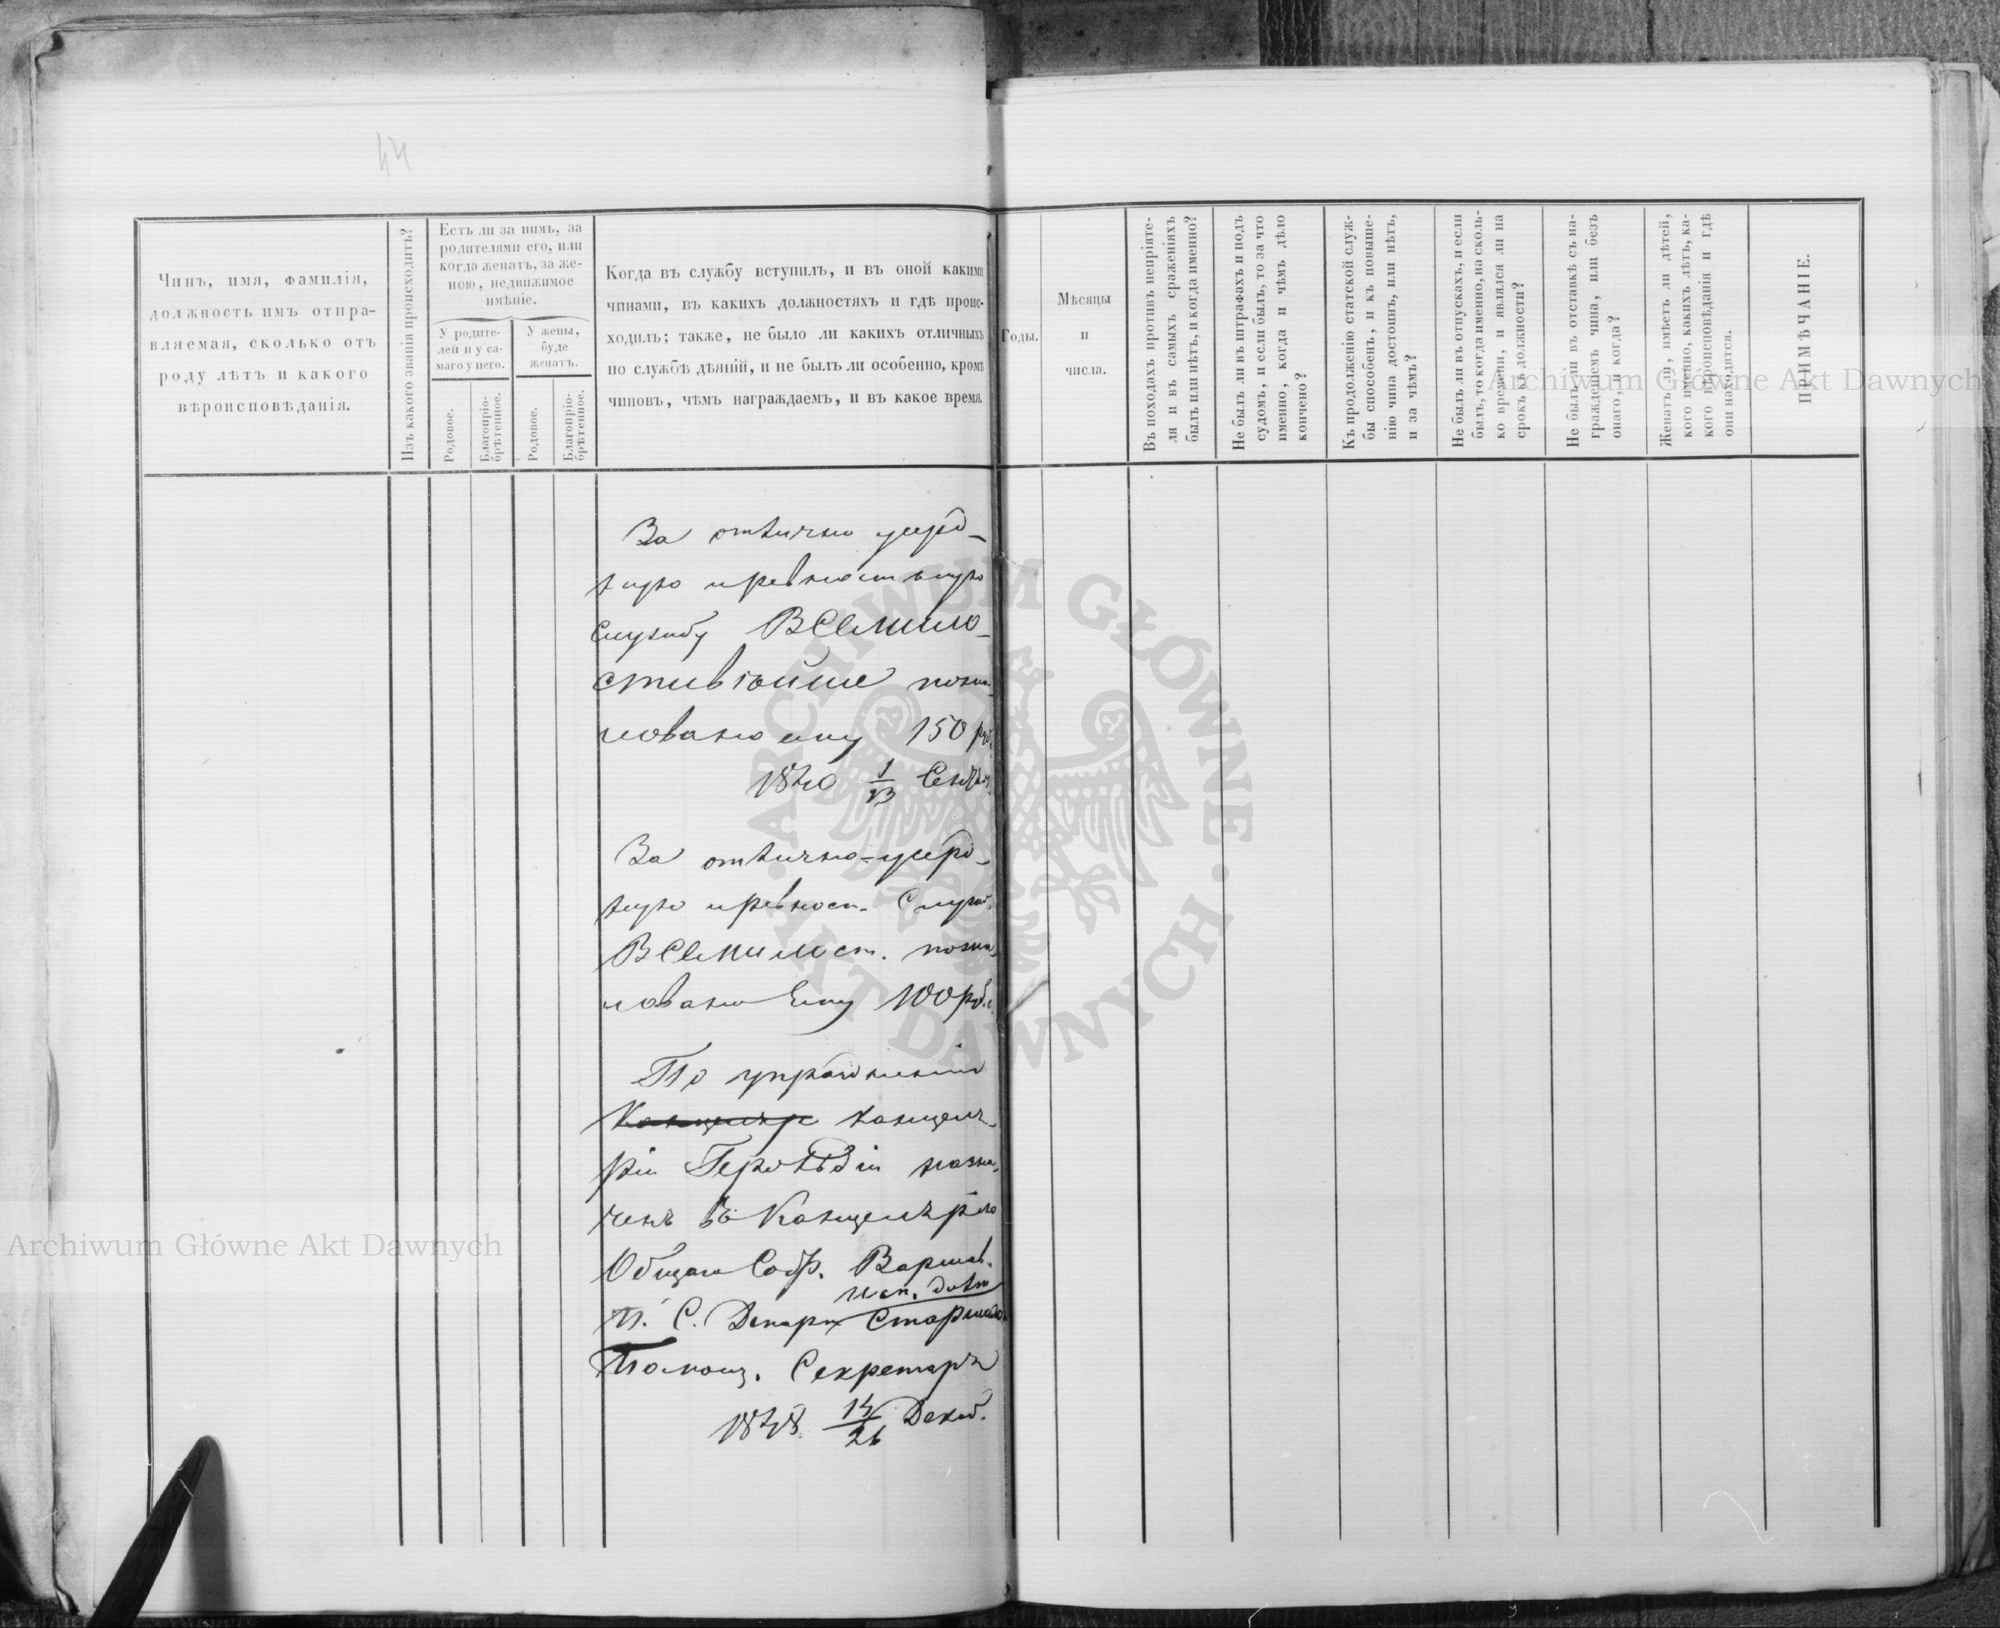 44
Чинъ, имя, фамилія,
должность имъ отпра-
вляемая, сколько отъ
роду лѣтъ и какого
вѣроисповѣданія.
Изъ какого званія происходитъ?
Есть ли за нимъ, за
родителями его, или
когда женатъ, за же-
ною, недвижимое
имѣніе.
У родите-
лей и у са-
маго у него.
У жены,
буде
женатъ.
Родовое.
Благопріо-
брѣтенное.
Родовое.
Благопріо-
брѣтенное.
Когда въ службу вступилъ, и въ оной какими
чинами, въ какихъ должностяхъ и гдѣ проис-
ходилъ; также, не было ли какихъ отличныхъ
по службѣ дѣяній, и не былъ ли особенно, кромѣ
чиновъ, чѣмъ награждаемъ, и въ какое время.
Годы.
Мѣсяцы
и
числа.
Въ походахъ противъ непріяте-
ля и въ самыхъ сраженіяхъ
былъ или нѣтъ, и когда именно?
Не былъ ли въ штрафахъ и подъ
судомъ, и если былъ, то за что
именно, когда и чѣмъ дѣло
кончено?
Къ продолженію статской служ-
бы способенъ, и къ повыше-
нію чина достоинъ, или нѣтъ,
и за чѣмъ?
Не былъ ли въ отпускахъ, и если
былъ, то когда именно, на сколь-
ко времени, и являлся ли на
срокъ къ должности?
Не былъ ли въ отставкѣ съ на-
гражденіемъ чина, или безъ
онаго, и когда?
Женатъ ли, имѣетъ ли дѣтей,
кого именно, какихъ лѣтъ, ка-
кого вѣроисповѣданія и гдѣ
они находятся.
ПРИМѢЧАНІЕ.
За отлично усерд-
ную и ревностную
службу ВСЕМИЛО-
СТИВѢЙШЕ пожа-
ловано ему 150 руб.
1840 1/13 Сентяб.
За отлично-усерд-
ную и ревност. Служб.
ВСЕМИЛОст. пожа-
ловано Ему 100 руб.
По упраздненіи
Канцеляр Канцеля-
ріи Герольдіи назна-
ченъ въ Канцелярію
Общаго Собр. Варшав.
исп. долж
П. С. Департ Старшаго
Помощ. Секретаря
1848 14/26 Декаб.
Archiwum Główne Akt Dawnych
Archiwum Główne Akt Dawnych
ARCHIWUM GŁÓWNE · AKT DAWNYCH ·